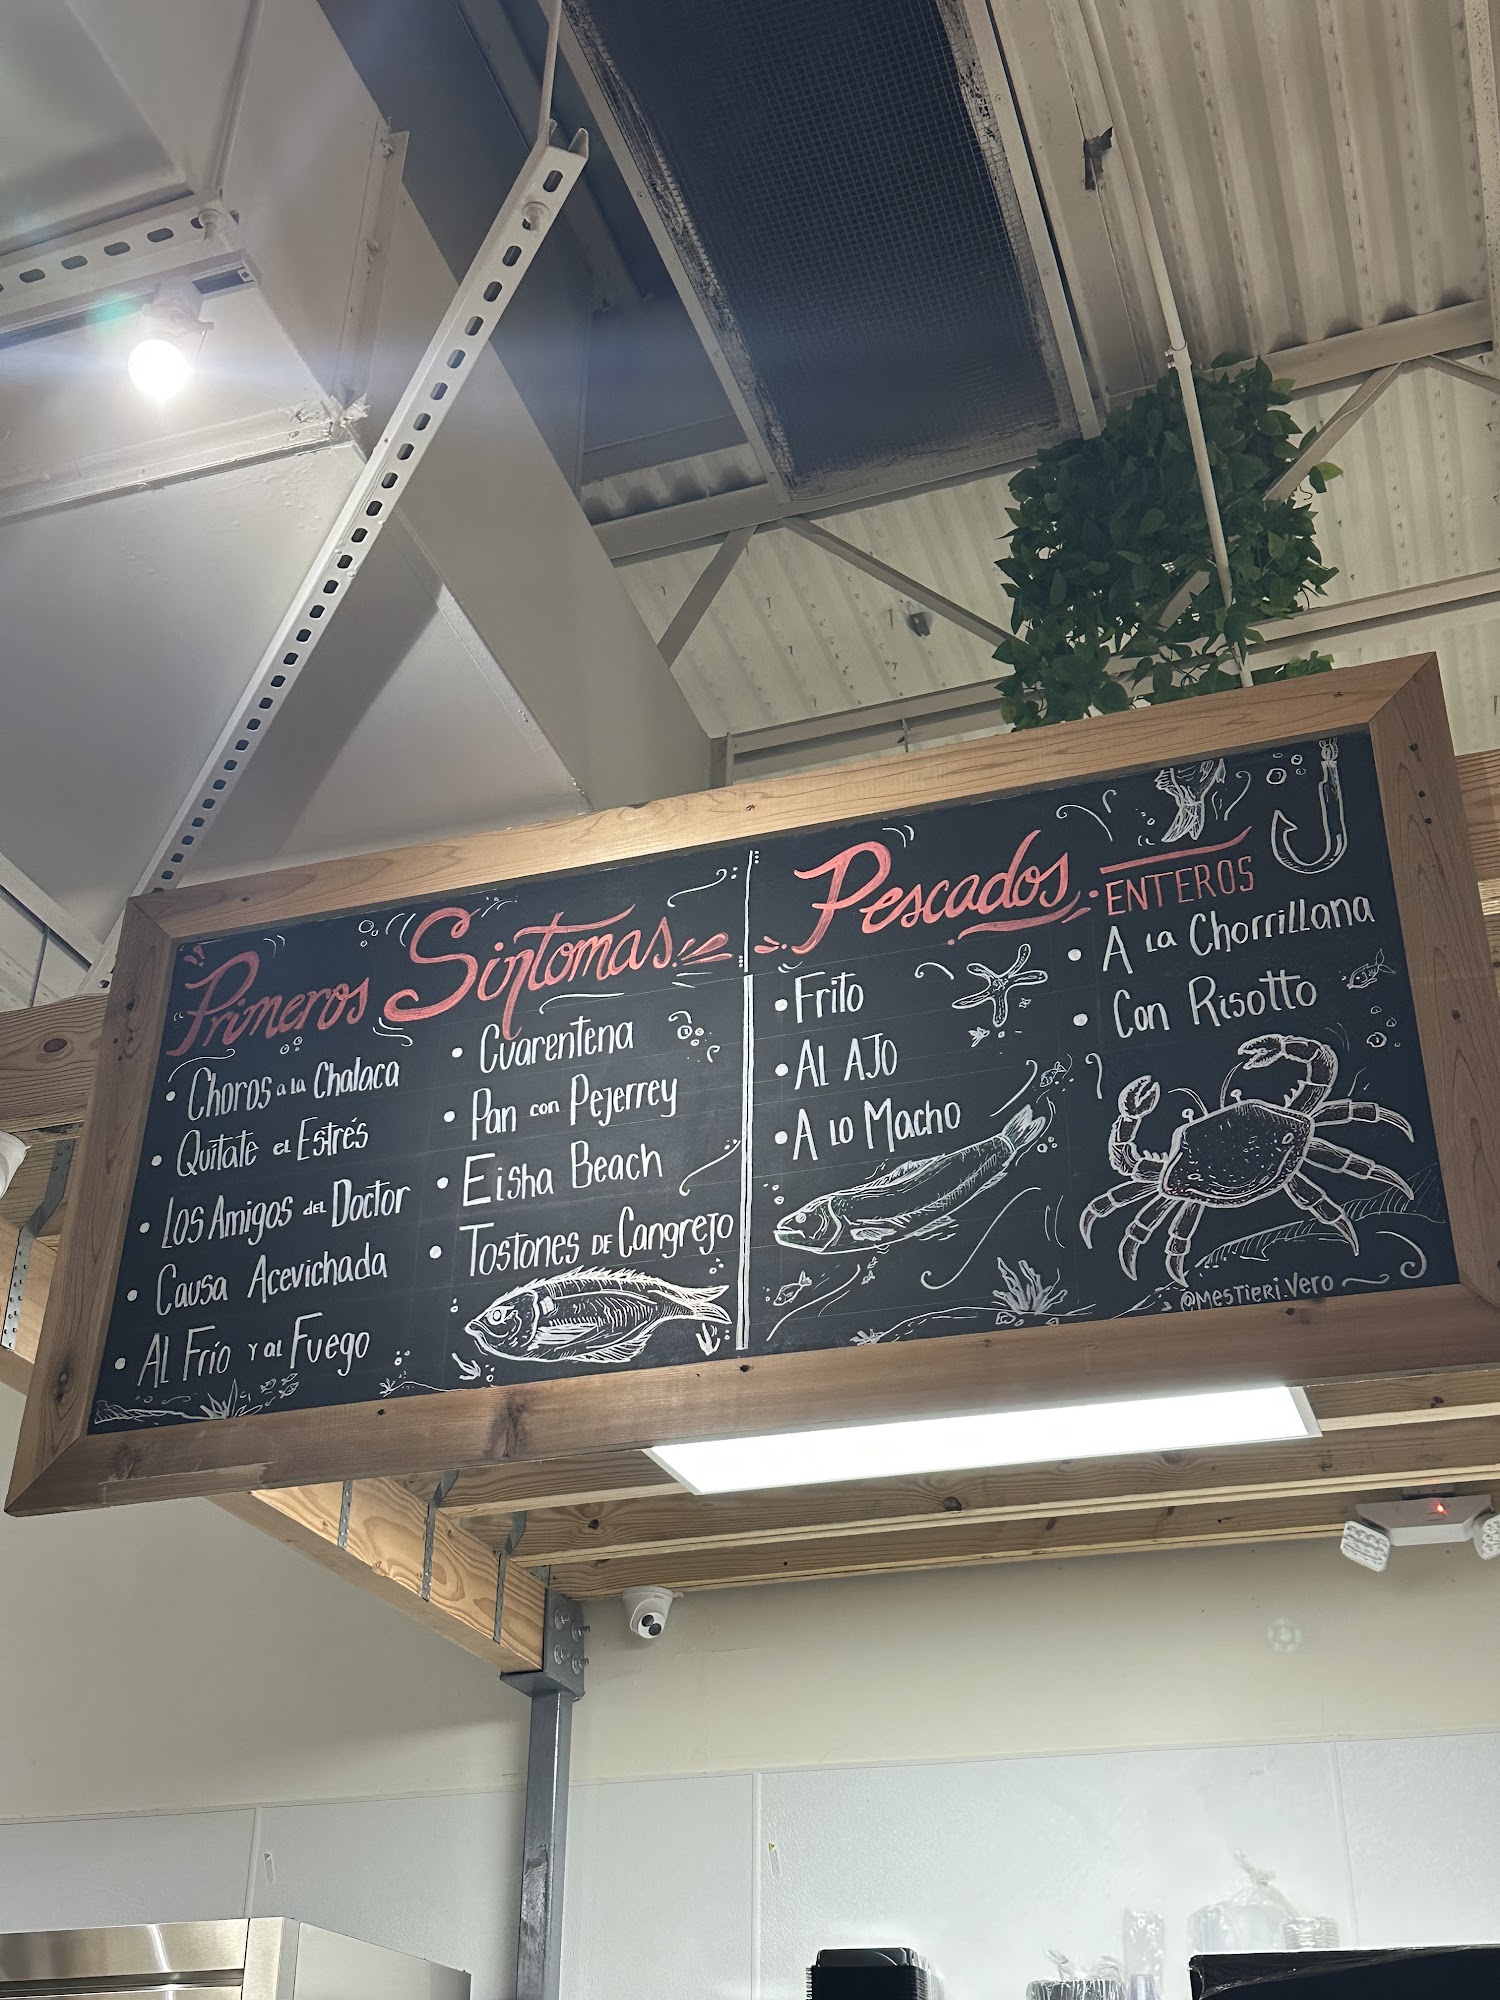 Primeros Síntomas
• Choros a la Chalaca
• Quítate el Estrés
• Los Amigos del Doctor
• Causa Acevichada
• Al Frío y al Fuego
• Cuarentena
• Pan con Pejerrey
• Eisha Beach
• Tostones de Cangrejo
Pescados. ENTEROS
• Frito
• Al Ajo
• A lo Macho
• A la Chorrillana
• Con Risotto
@mestieri.vero